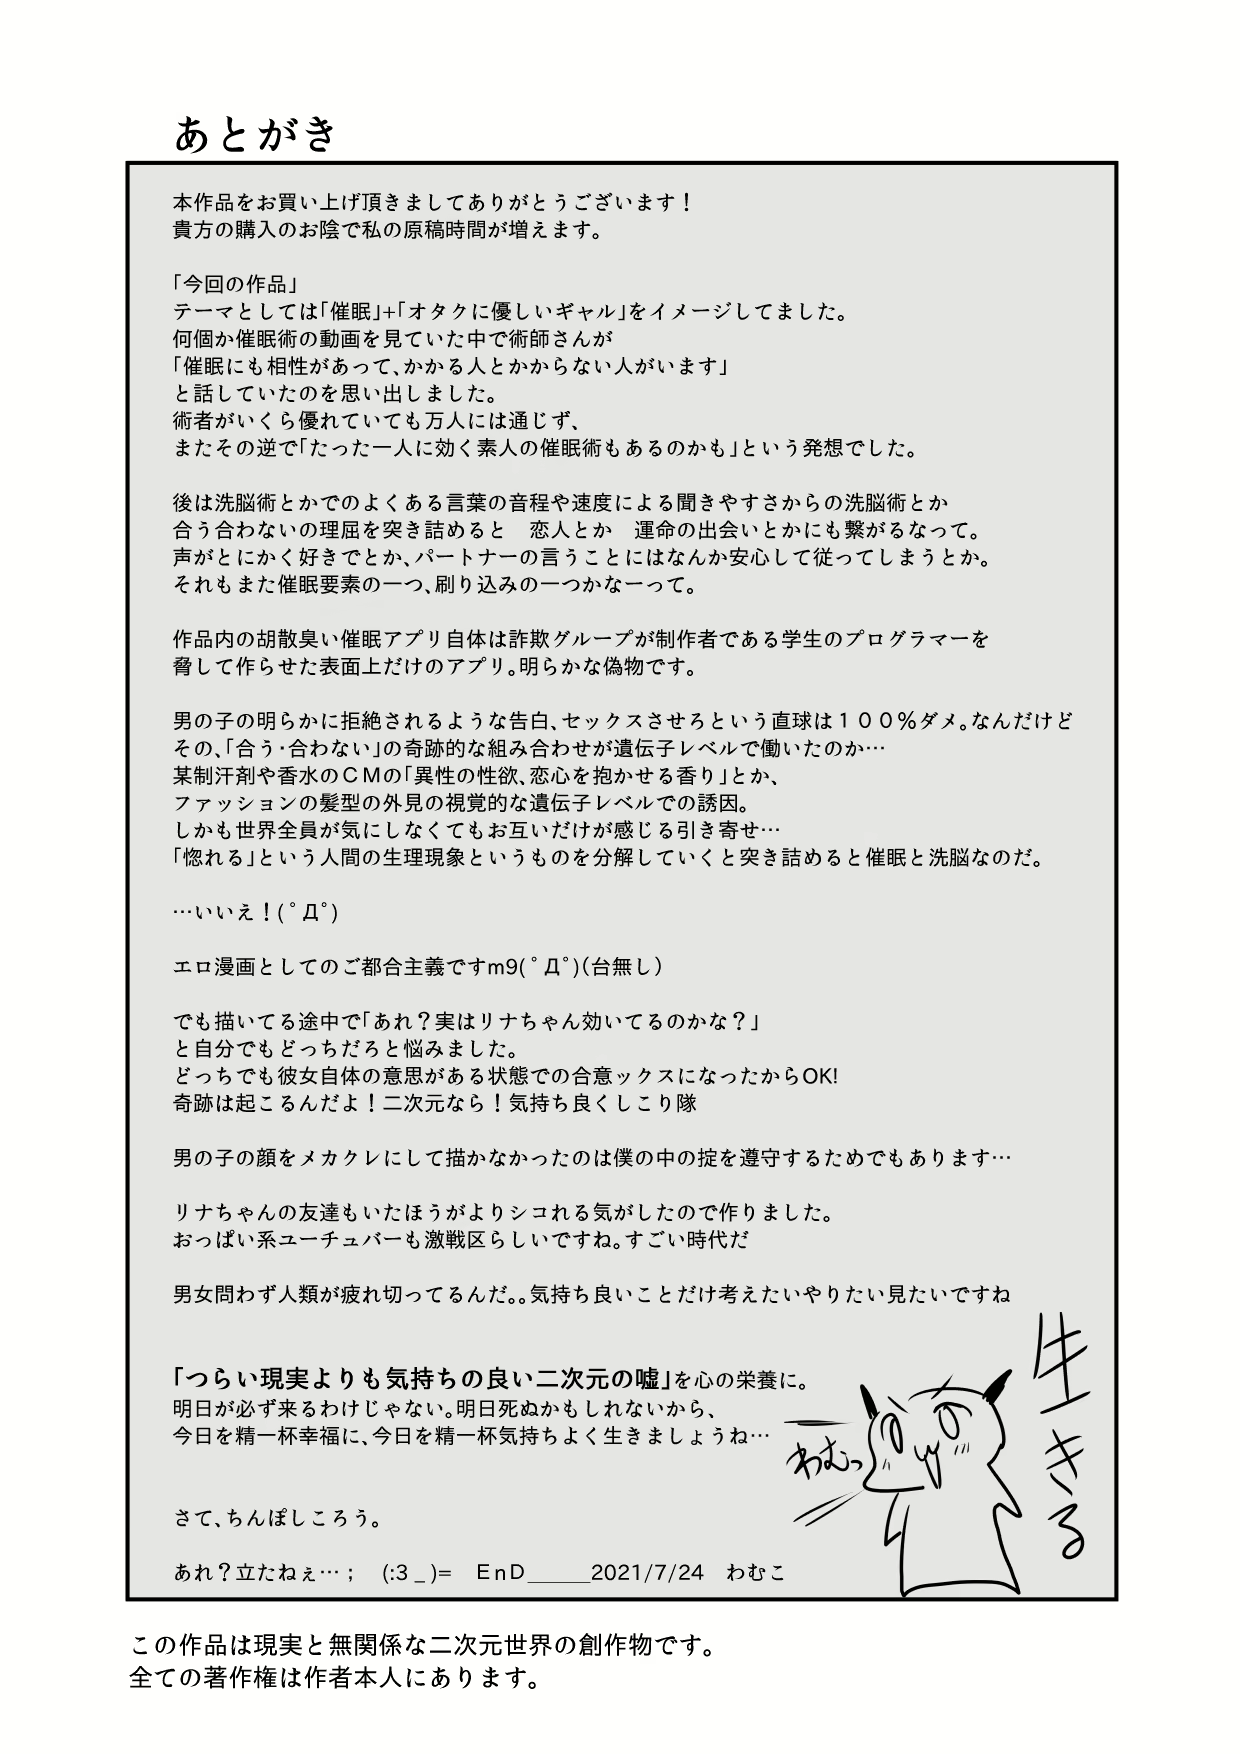 あとがき
本作品をお買い上げ頂きましてありがとうございます！
貴方の購入のお陰で私の原稿時間が増えます。
「今回の作品」
テーマとしては「催眠」+「オタクに優しいギャル」をイメージしてました。
何個か催眠術の動画を見ていた中で術師さんが
「催眠にも相性があって、かかる人とかからない人がいます」
と話していたのを思い出しました。
術者がいくら優れていても万人には通じず、
またその逆で「たった一人に効く素人の催眠術もあるのかも」という発想でした。
後は洗脳術とかでのよくある言葉の音程や速度による聞きやすさからの洗脳術とか
合う合わないの理屈を突き詰めると　恋人とか　運命の出会いとかにも繋がるなって。
声がとにかく好きでとか、パートナーの言うことにはなんか安心して従ってしまうとか。
それもまた催眠要素の一つ、刷り込みの一つかなーって。
作品内の胡散臭い催眠アプリ自体は詐欺グループが制作者である学生のプログラマーを
脅して作らせた表面上だけのアプリ。明らかな偽物です。
男の子の明らかに拒絶されるような告白、セックスさせろという直球は１００％ダメ。なんだけど
その、「合う･合わない」の奇跡的な組み合わせが遺伝子レベルで働いたのか…
某制汗剤や香水のＣＭの「異性の性欲、恋心を抱かせる香り」とか、
ファッションの髪型の外見の視覚的な遺伝子レベルでの誘因。
しかも世界全員が気にしなくてもお互いだけが感じる引き寄せ…
「惚れる」という人間の生理現象というものを分解していくと突き詰めると催眠と洗脳なのだ。
…いいえ！(ﾟДﾟ)
エロ漫画としてのご都合主義ですm9(ﾟДﾟ)（台無し）
でも描いてる途中で「あれ？実はリナちゃん効いてるのかな？」
と自分でもどっちだろと悩みました。
どっちでも彼女自体の意思がある状態での合意ックスになったからOK!
奇跡は起こるんだよ！二次元なら！気持ち良くしこり隊
男の子の顔をメカクレにして描かなかったのは僕の中の掟を遵守するためでもあります…
リナちゃんの友達もいたほうがよりシコれる気がしたので作りました。
おっぱい系ユーチュバーも激戦区らしいですね。すごい時代だ
男女問わず人類が疲れ切ってるんだ。。気持ち良いことだけ考えたいやりたい見たいですね
「つらい現実よりも気持ちの良い二次元の嘘」を心の栄養に。
明日が必ず来るわけじゃない。明日死ぬかもしれないから、
今日を精一杯幸福に、今日を精一杯気持ちよく生きましょうね…
生きる
わむっ
さて、ちんぽしころう。
あれ？立たねぇ…；　(:3 _ )=　EnD_____2021/7/24　わむこ
この作品は現実と無関係な二次元世界の創作物です。
全ての著作権は作者本人にあります。